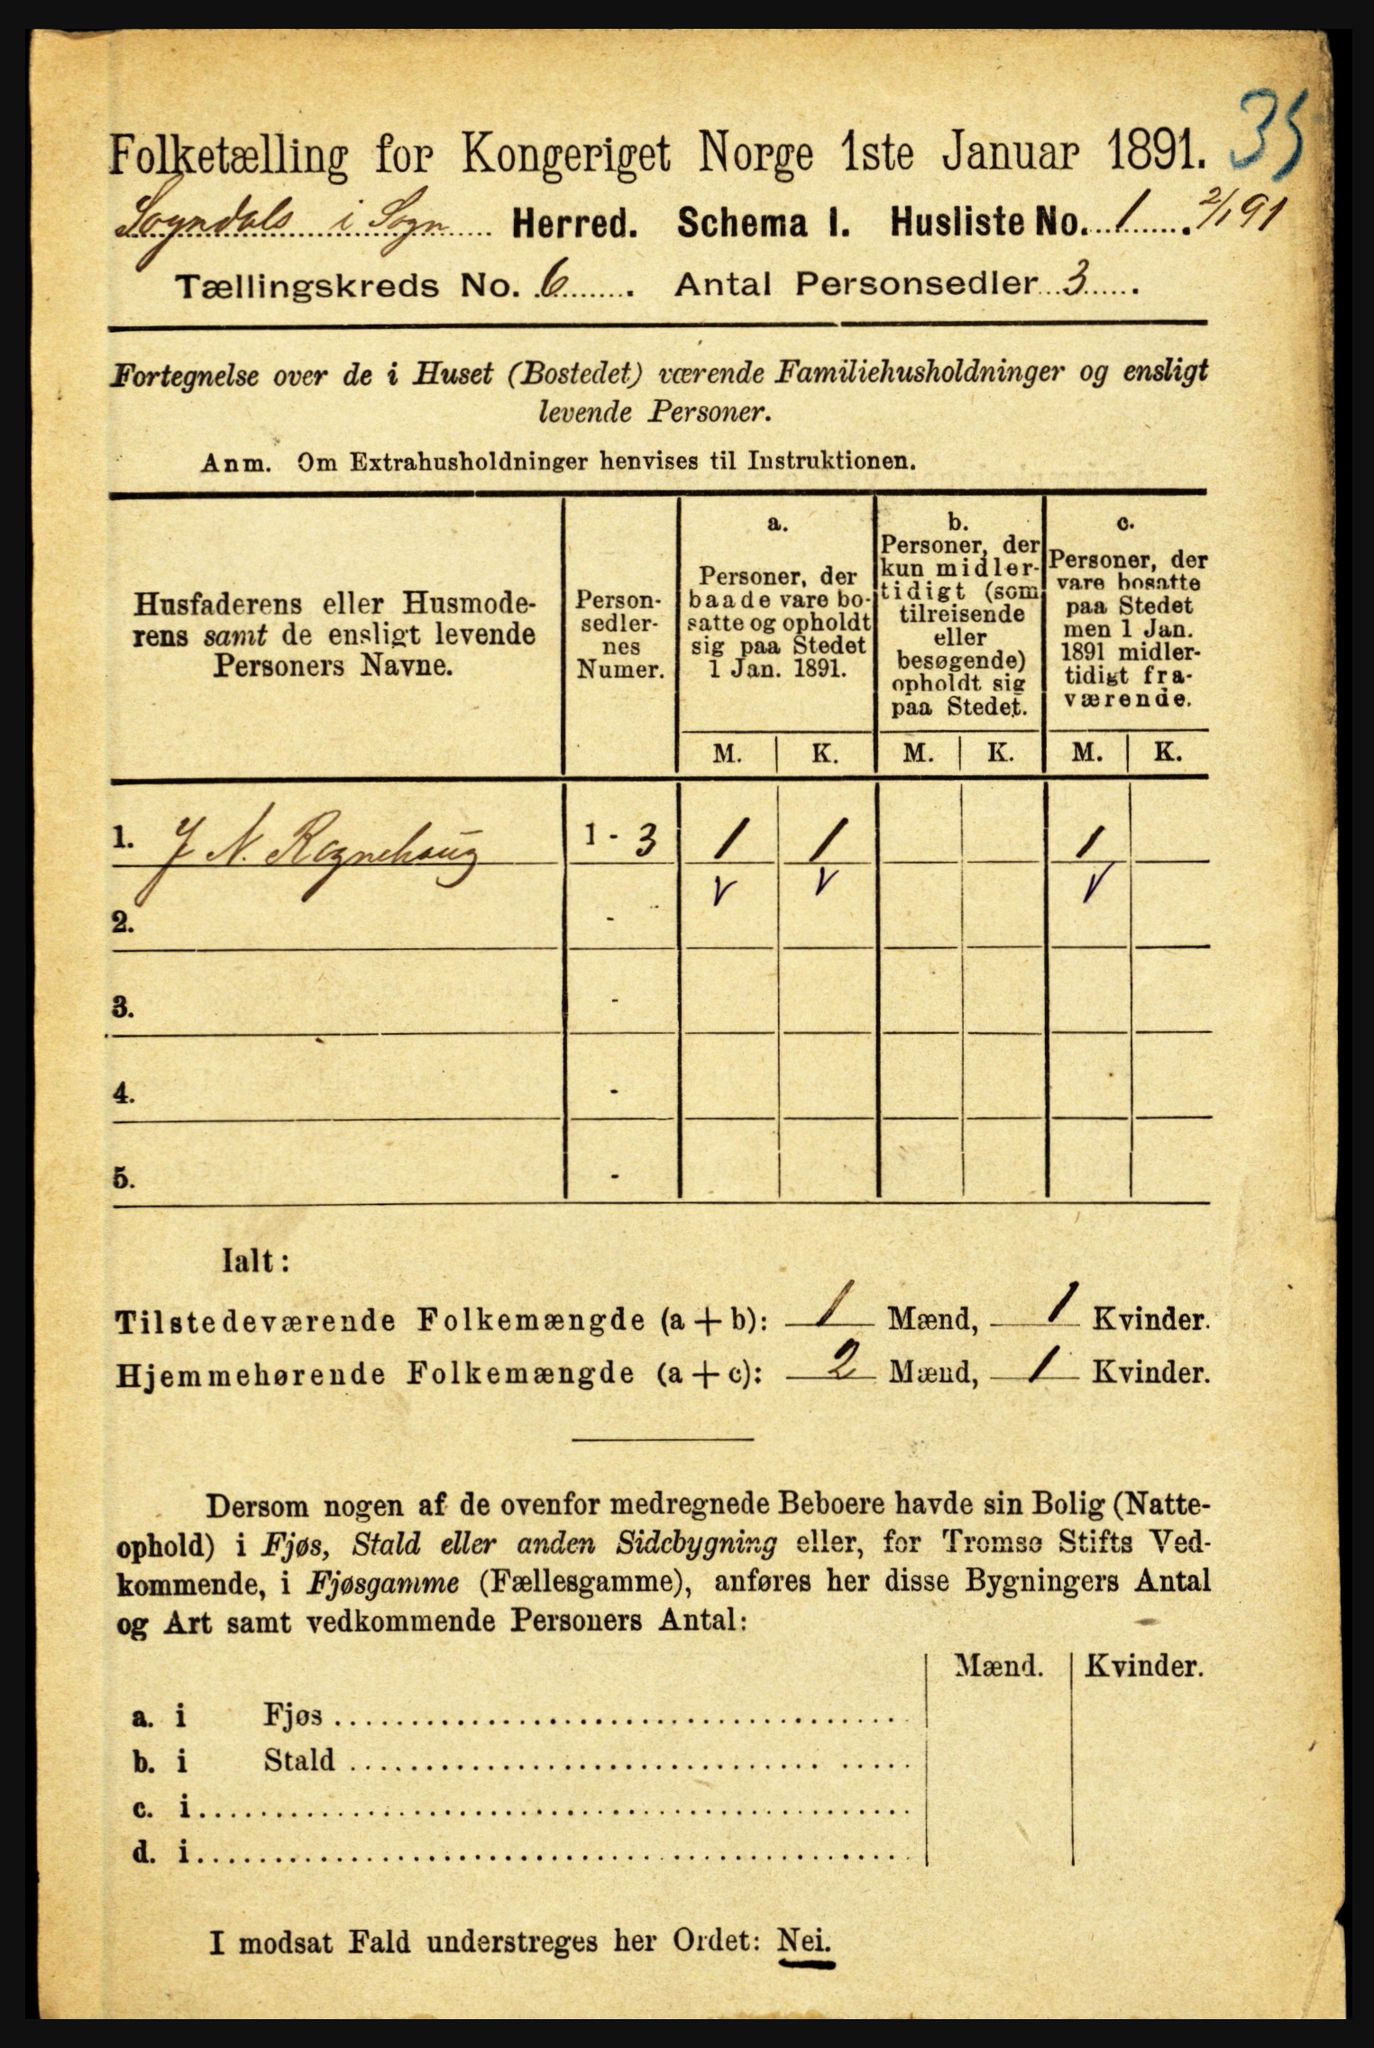 35
Folketælling for Kongeriget Norge 1ste Januar 1891.
Sogndals i Sogn Herred. Schema I. Husliste No. 1. 2/1 91
Tællingskreds No. 6. Antal Personsedler 3.
Fortegnelse over de i Huset (Bostedet) værende Familiehusholdninger og ensligt
levende Personer.
Anm. Om Extrahusholdninger henvises til Instruktionen.
Husfaderens eller Husmode-
rens samt de ensligt levende
Personers Navne.
Person-
sedler-
nes
Numer.
a.
Personer, der
baade vare bo-
satte og opholdt
sig paa Stedet
1 Jan. 1891.
b.
Personer, der
kun midler-
tidigt (som
tilreisende
eller
besøgende)
opholdt sig
paa Stedet.
c.
Personer, der
vare bosatte
paa Stedet
men 1 Jan.
1891 midler-
tidigt fra-
værende.
M. K. M. K. M. K.
1. J N. Rognehaug 1 - 3 1 1 1
2. -
3. -
4. -
5. -
Ialt:
Tilstedeværende Folkemængde (a + b): 1 Mænd, 1 Kvinder.
Hjemmehørende Folkemængde (a + c): 2 Mænd, 1 Kvinder.
Dersom nogen af de ovenfor medregnede Beboere havde sin Bolig (Natte-
ophold) i Fjøs, Stald eller anden Sidebygning eller, for Tromsø Stifts Ved-
kommende, i Fjøsgamme (Fællesgamme), anføres her disse Bygningers Antal
og Art samt vedkommende Personers Antal:
Mænd. Kvinder.
a. i Fjøs
b. i Stald
c. i
d. i
I modsat Fald understreges her Ordet: Nei.